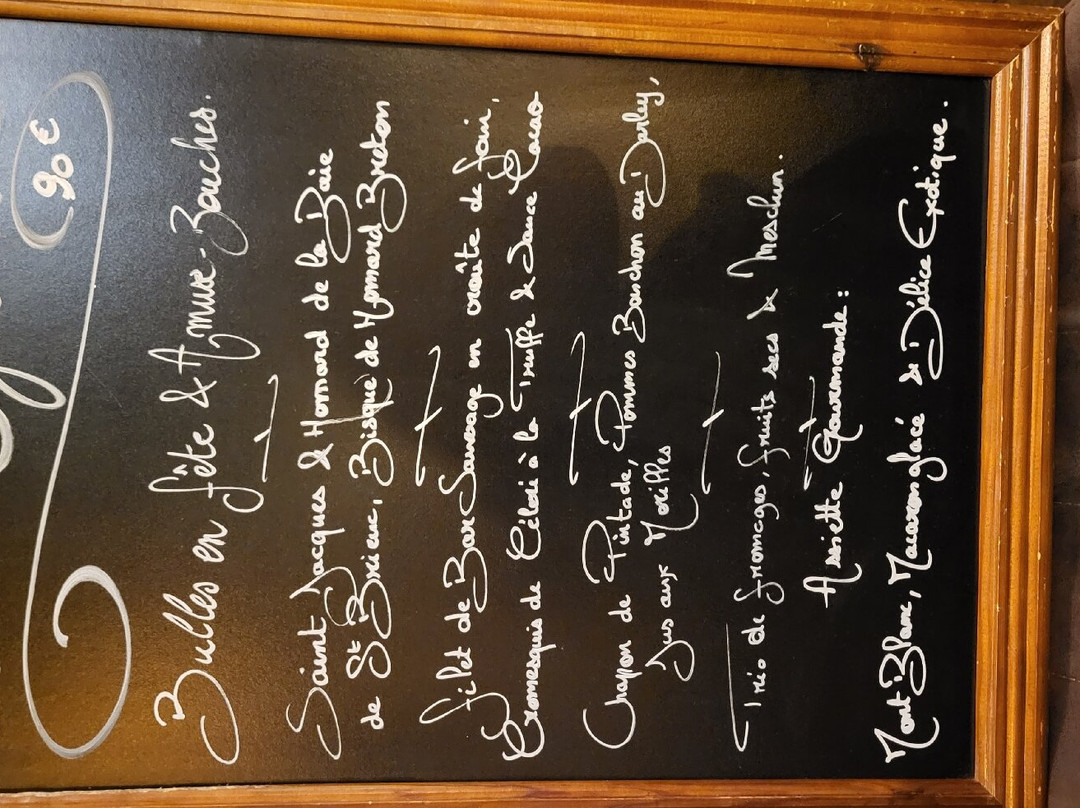 90 €
Bulles en fête & Amuse-Bouches.
Saint Jacques & Homard de la Baie
de St Brieuc, Bisque de Homard Breton
Filet de Bar Sauvage en croûte de foin,
Cromesquis de Céleri à la Truffe & Sauce Cacao
Chapon de Pintade, Pommes Bouchon au Darley,
Jus aux Morilles
Trio de fromages, fruits secs & Mesclun.
Assiette Gourmande :
Mont Blanc, Marron glacé & Délice Exotique.